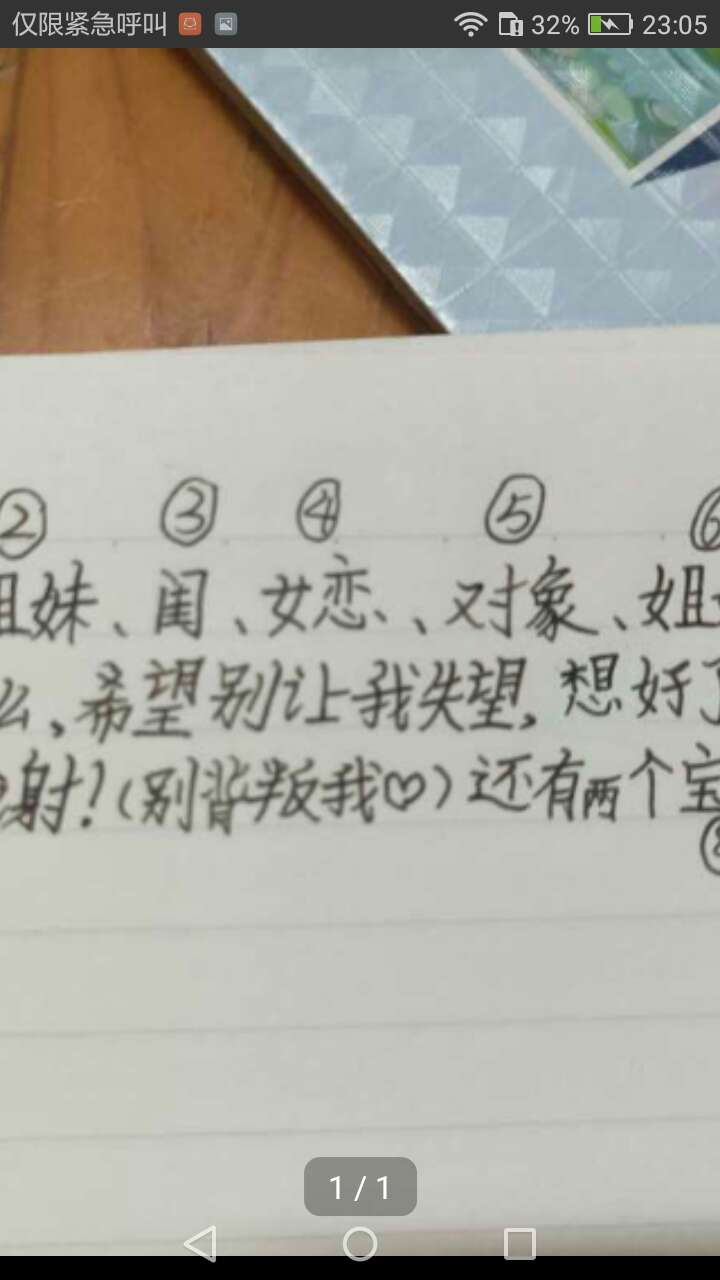 仅限紧急呼叫 32% 23:05
② ③ ④ ⑤ ⑥
姐妹、闺、女恋、、对象、姐
么,希望别让我失望,想好了
射!(别背叛我♡)还有两个宝
1 / 1